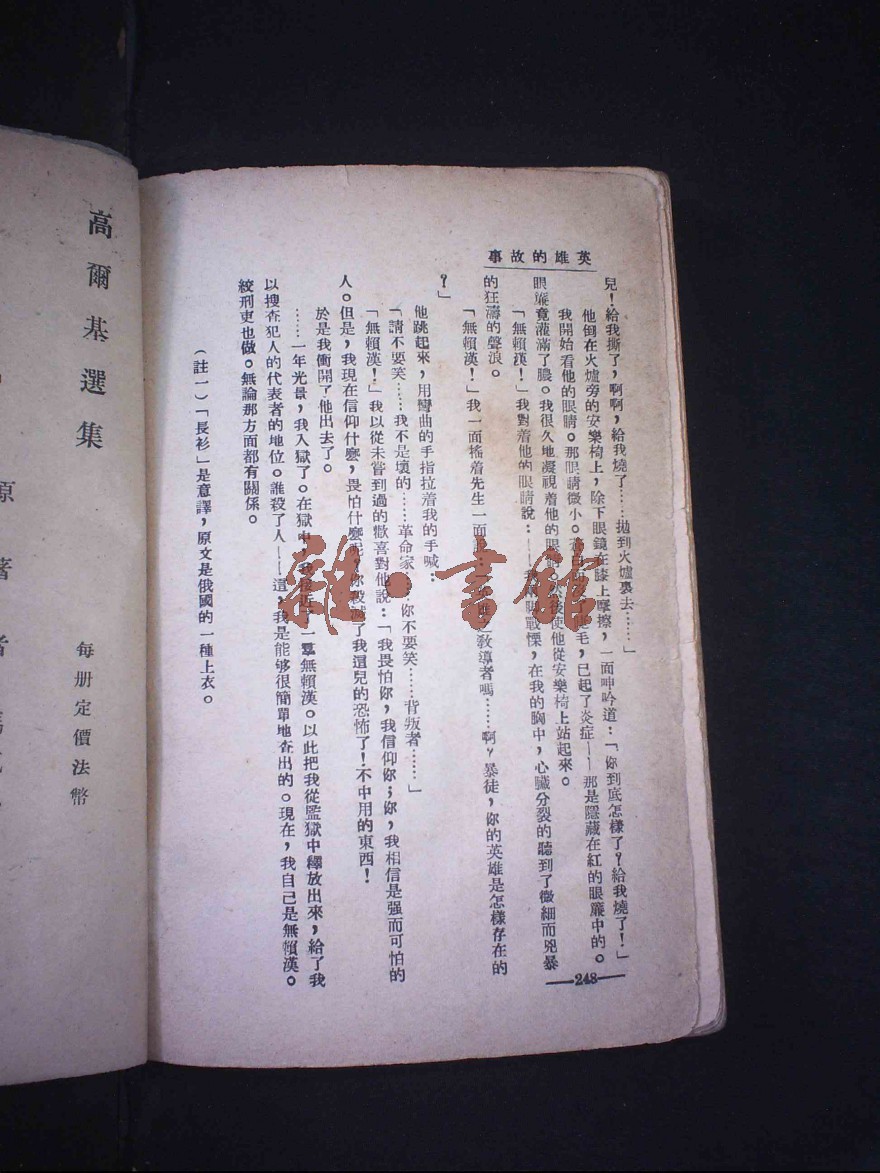 英雄的故事
兒！給我撕了，啊啊，給我燒了……拋到火爐裏去……」
他倒在火爐旁的安樂椅上，除下眼鏡在膝上摩擦，一面呻吟道：「你到底怎樣了？給我燒了！」
我開始看他的眼睛。那眼睛微小。毛，已起了炎症——那是隱藏在紅的眼簾中的。
眼簾竟灌滿了膿。我很久地凝視着他的眼睛。然後使他從安樂椅上站起來。
「無賴漢！」我對着他的眼睛說：——我戰慄，在我的胸中，心臟分裂的聽到了微細而兇暴
的狂濤的聲浪。
「無賴漢！」我一面搖着先生一面教導者嗎……啊？暴徒，你的英雄是怎樣存在的
？」
他跳起來，用彎曲的手指拉着我的手喊：
「請不要笑……我不是壞的……革命家……你不要笑……背叛者……」
「無賴漢！」我以從未嘗到過的歡喜對他說：「我畏怕你，我信仰你；你，我相信是强而可怕的
人。但是，我現在信仰什麽，畏怕什麽呢，你毀滅了我這兒的恐怖了！不中用的東西！
於是我衝開了他出去了。
……一年光景，我入獄了。在獄中，我接近了一羣無賴漢。以此把我從監獄中釋放出來，給了我
以搜查犯人的代表者的地位。誰殺了人——這，我是能够很簡單地查出的。現在，我自己是無賴漢。
絞刑吏也做。無論那方面都有關係。
（註一）「長衫」是意譯，原文是俄國的一種上衣。
—248—
每册定價法幣
高爾基選集
原著者
雜·書館